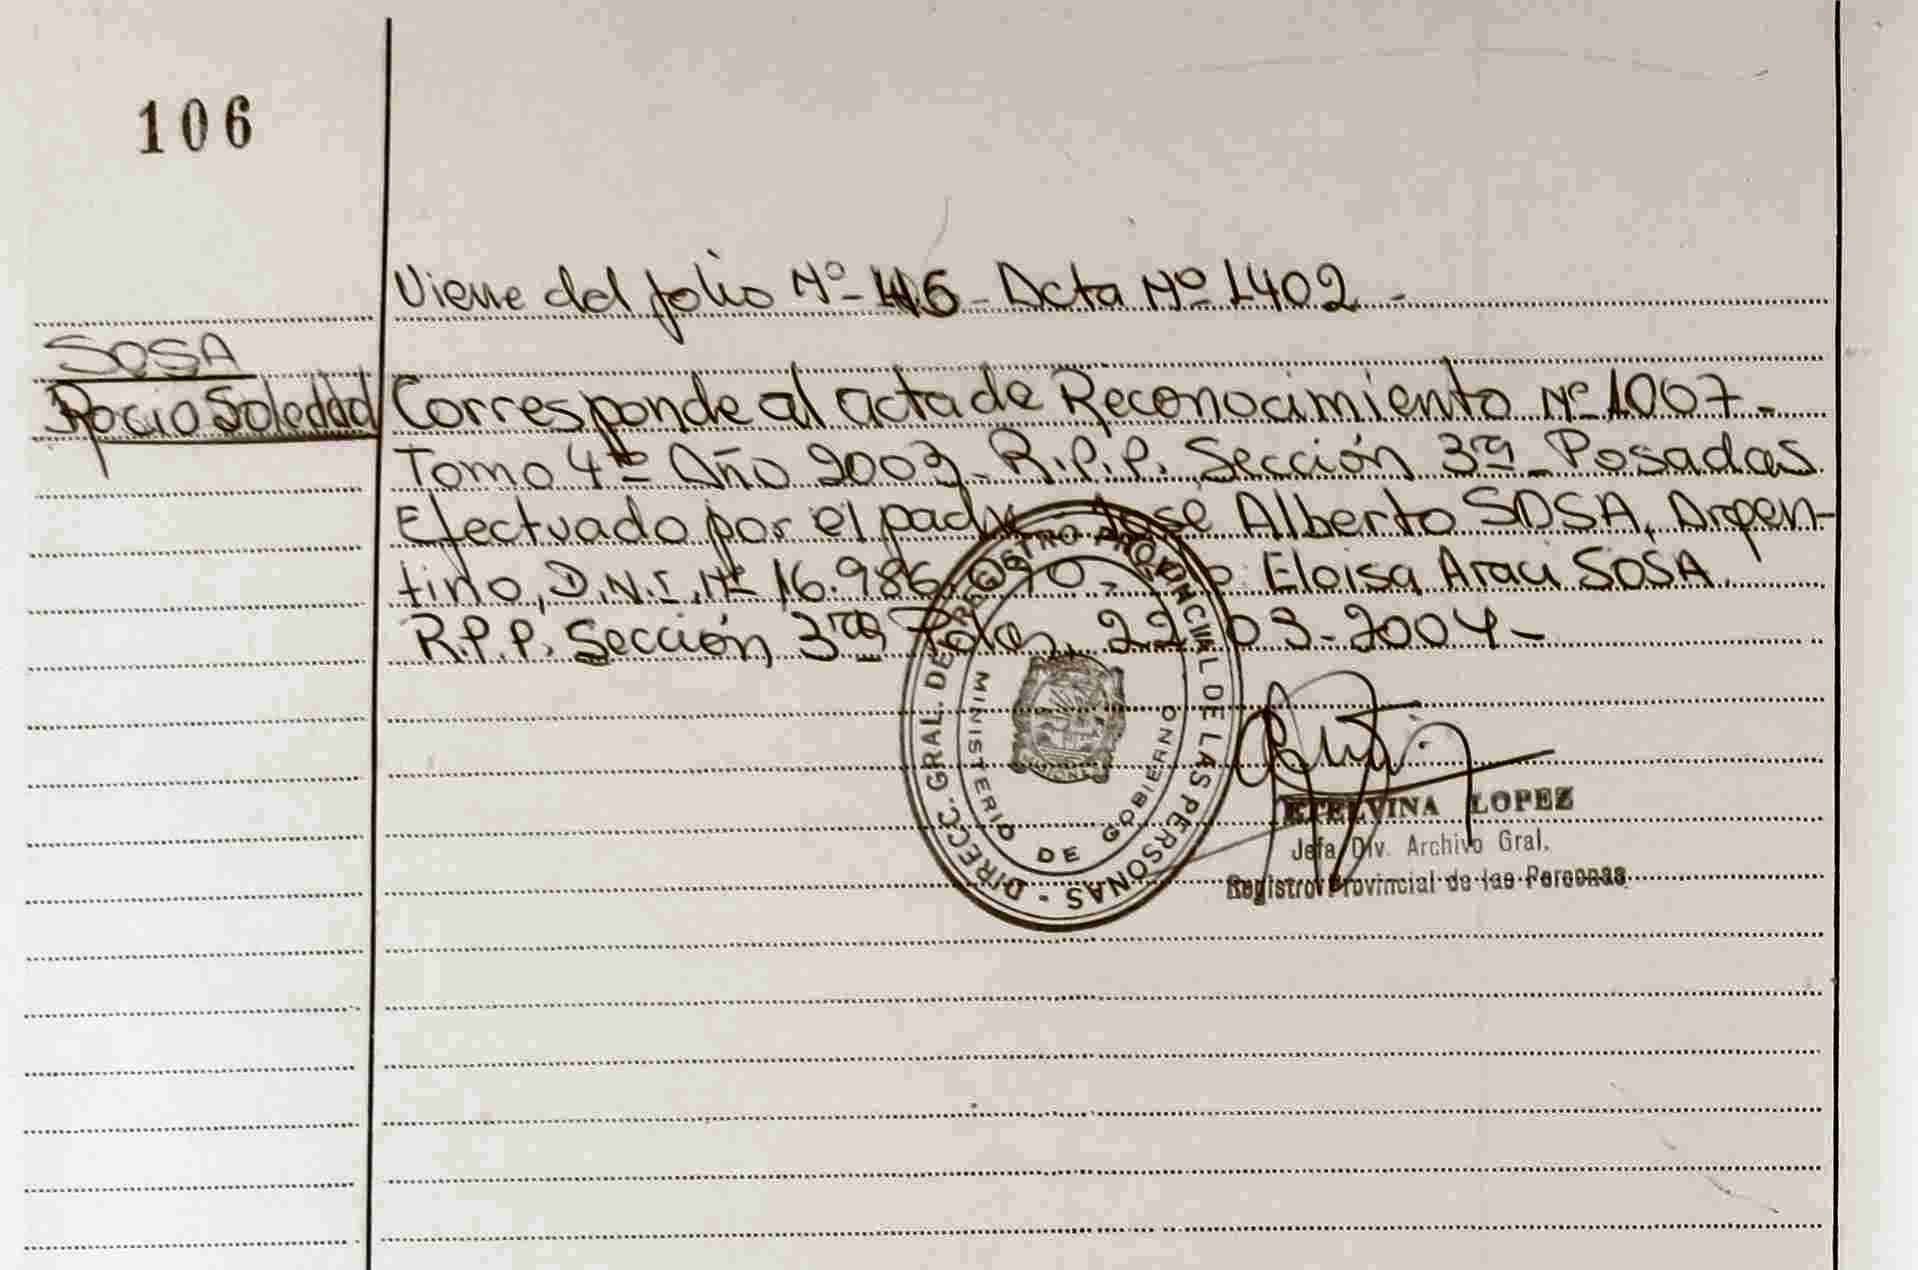 106
Viene del folio Nº 116 - Acta Nº 1402 -
SOSA
Rocio Soledad
Corresponde al acta de Reconocimiento Nº 1007 -
Tomo 4to Año 2003 - R.P.P. Sección 3ra - Posadas
Efectuado por el padre José Alberto SOSA, Argen-
tino, D.N.I. Nº 16.986.090 - Eloisa Araci SOSA
R.P.P. Sección 3ra 22-03-2004 -
DIRECC. GRAL. DE REGISTRO PROVINCIAL DE LAS PERSONAS -
MINISTERIO DE GOBIERNO
ETELVINA LOPEZ
Jefa Div. Archivo Gral.
Registro Provincial de las Personas